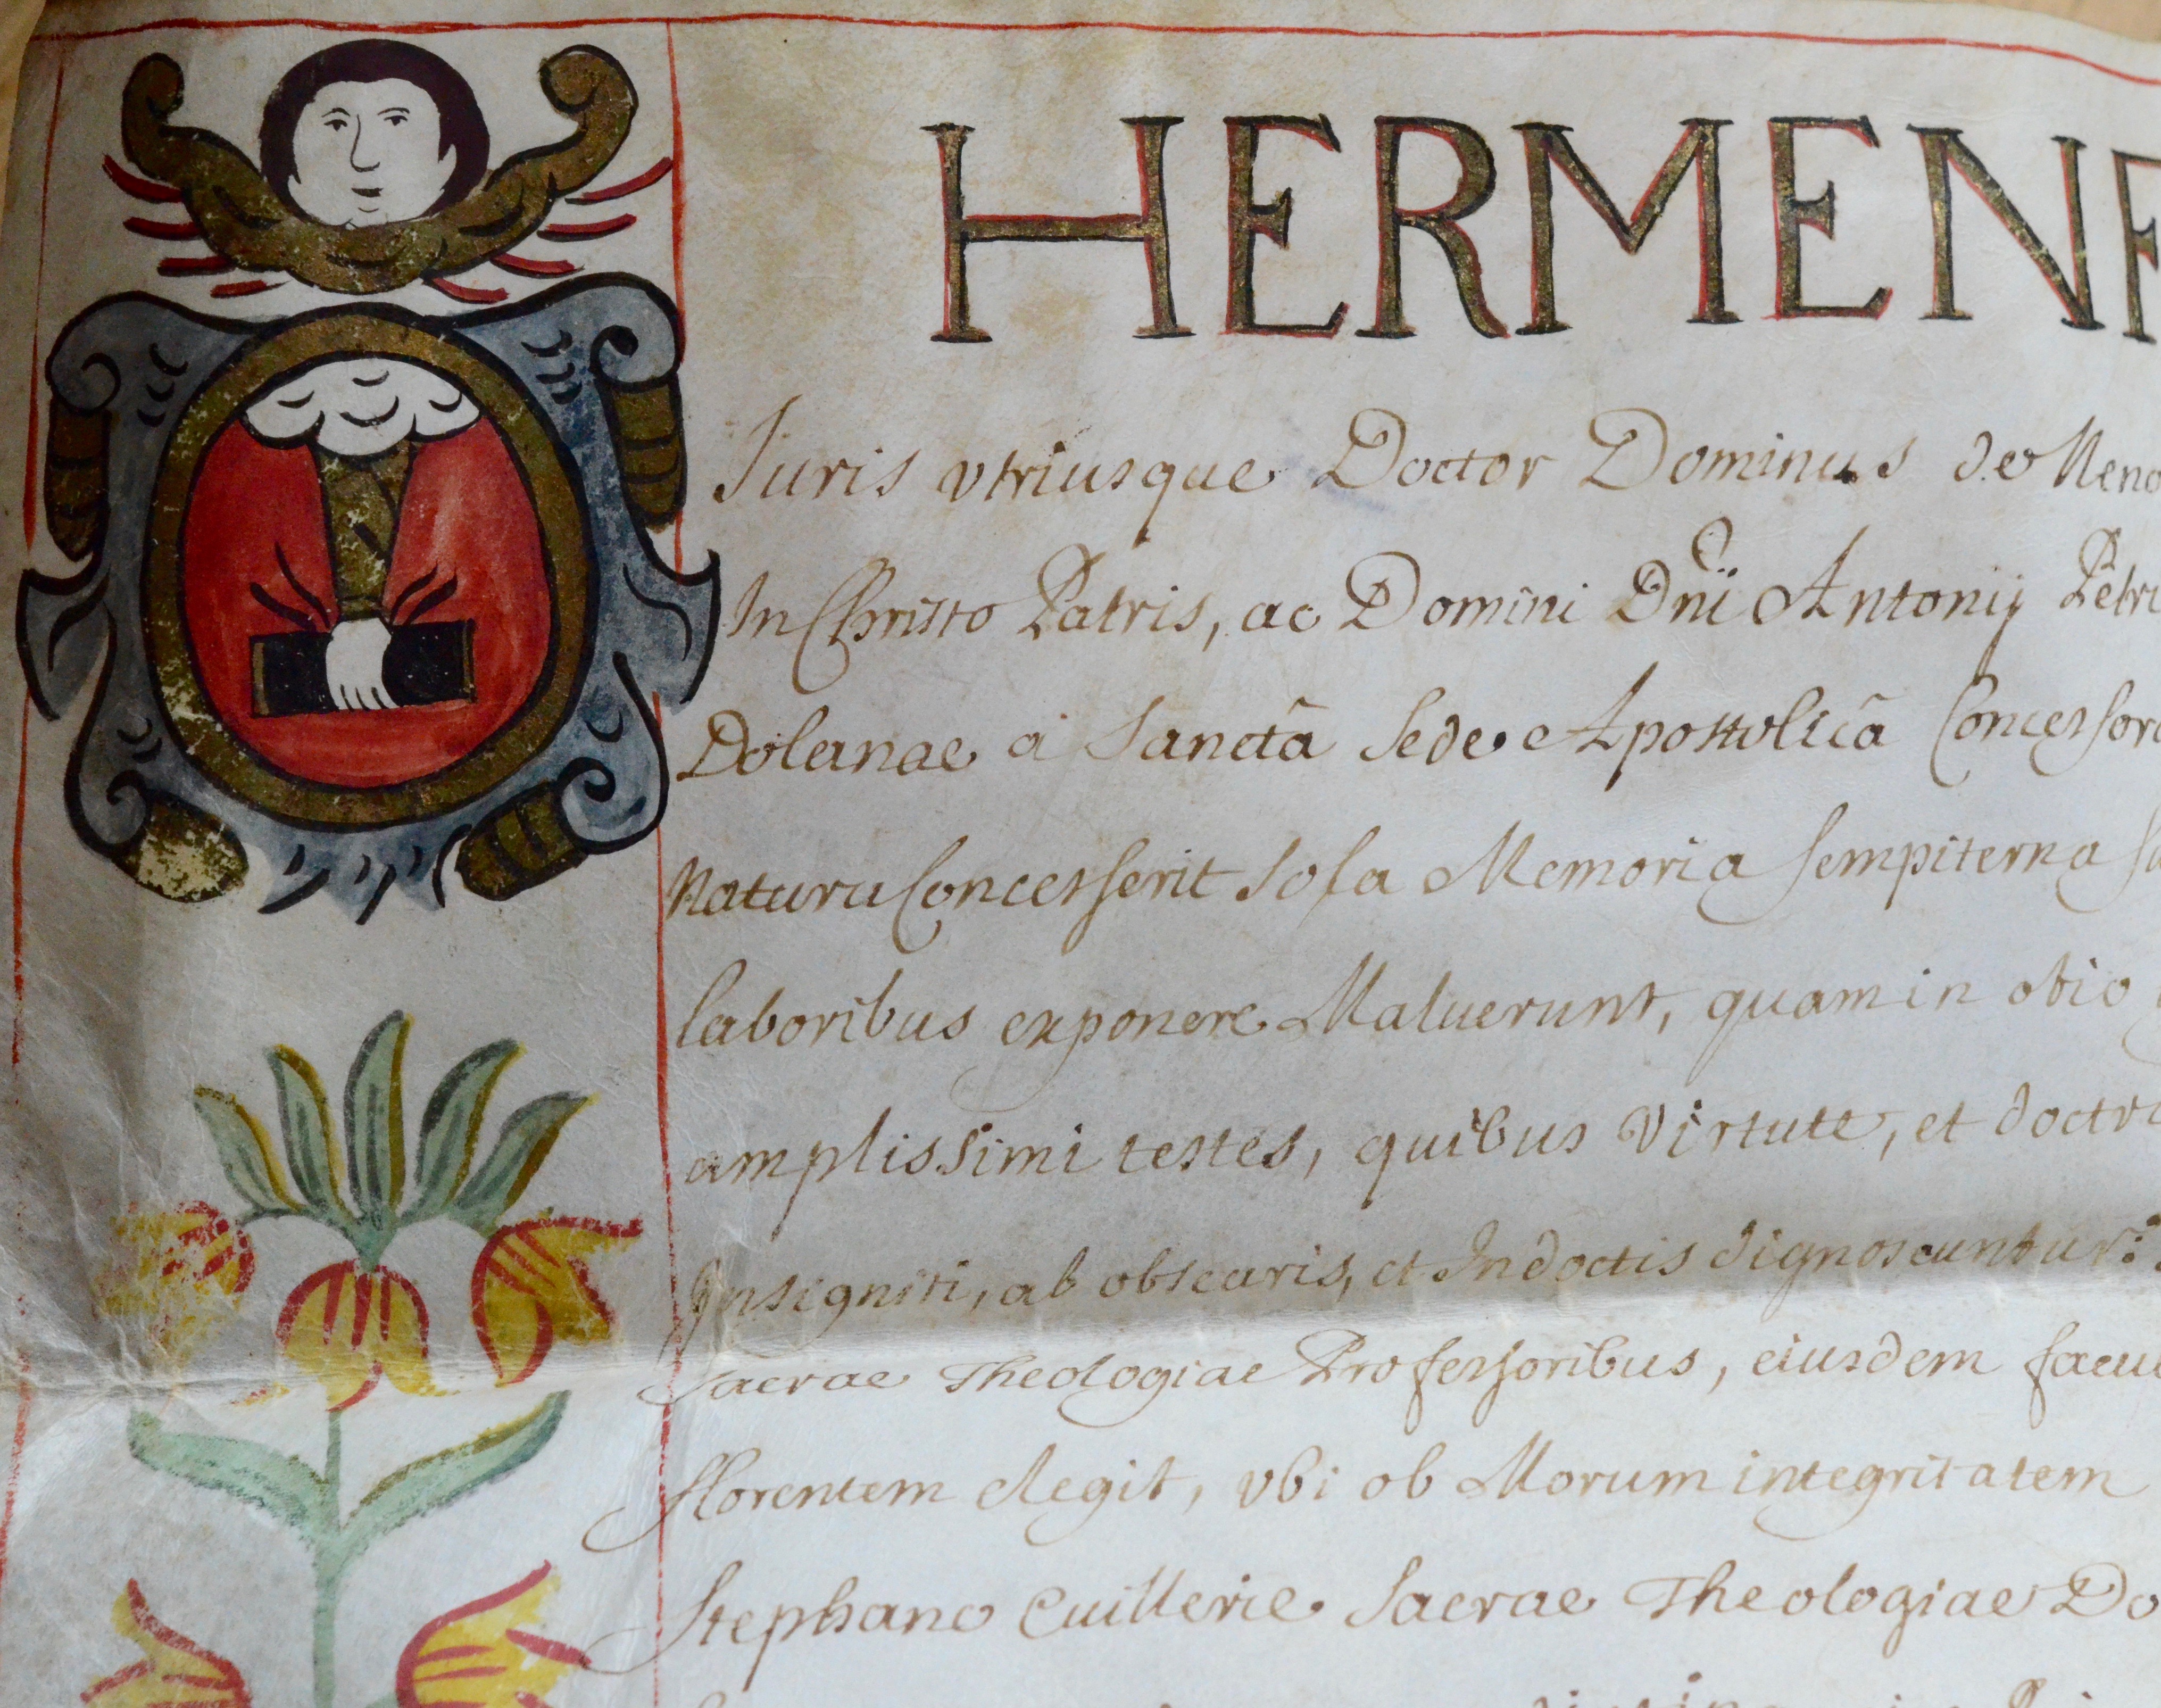 HERMENE
Iuris vtriusque Doctor Dominus de Neno
In Christo Patris, ac Domini Dni Antonij Petri
Dolanae a Sanctâ Sede Apostolicâ Concessore
Natura Concesserit sola Memoria sempiterna
laboribus exponere Maluerunt, quam in otio
amplissimi testes, quibus virtute, et doctri
Insigniti, ab obscuris, et Indoctis dignoscuntur:
Sacrae Theologiae Professoribus, eiusdem facul
florentem elegit, vbi ob Morum integritatem
Stephano Cuillerie Sacrae Theologiae Do